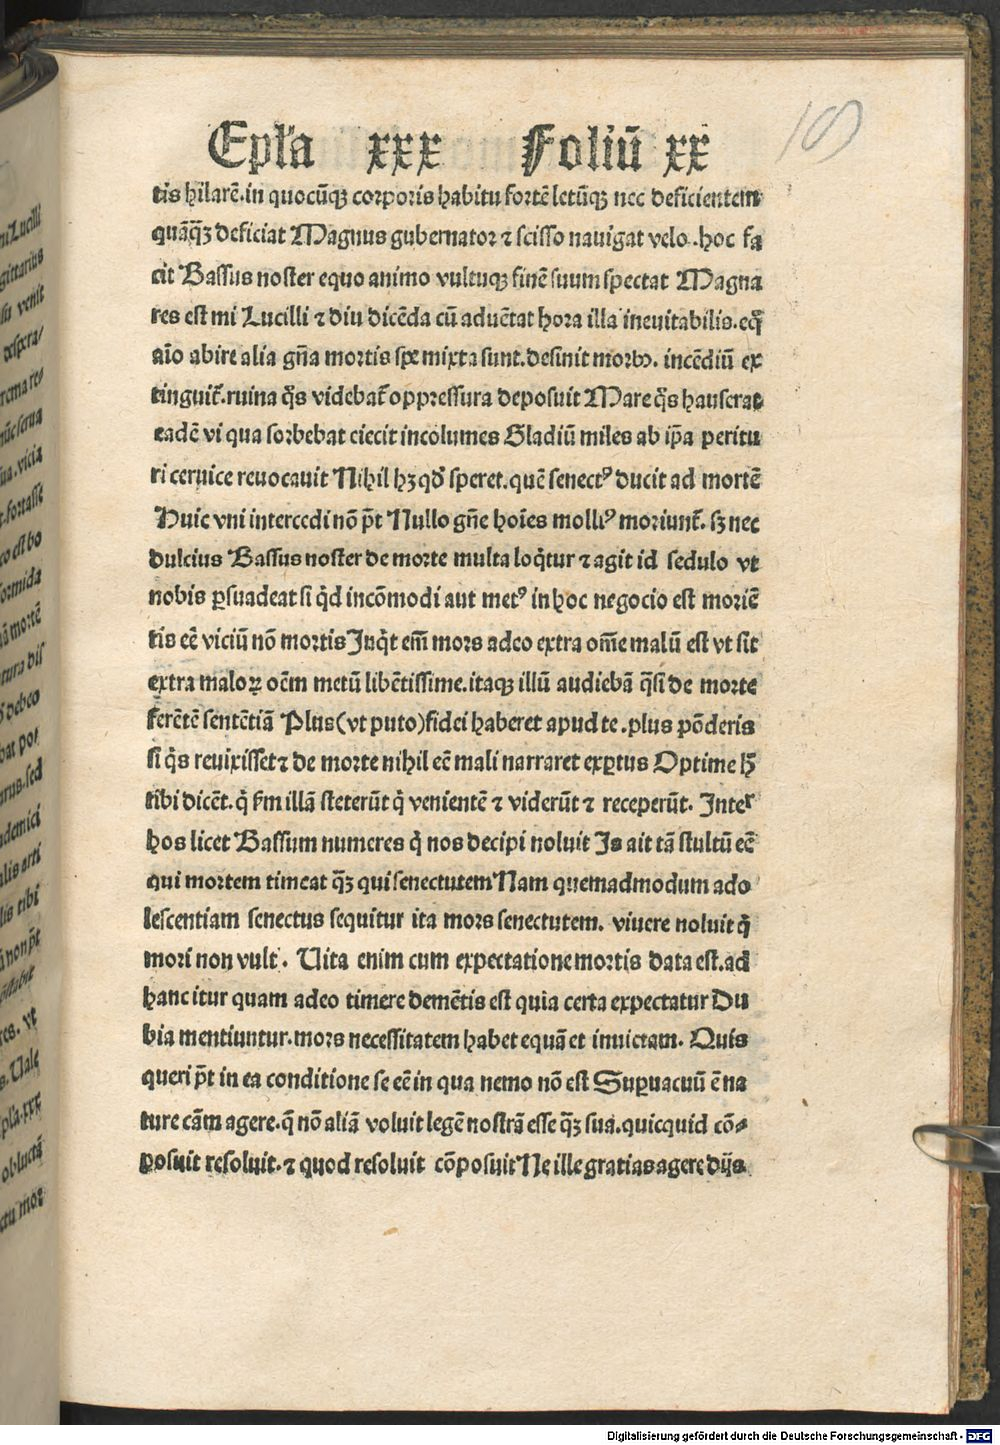 Epl̃a xxx Foliũ xx
tis hilarẽ. in quocũqꝫ corporis habitu fortẽ letũqꝫ nec deficientem
quãq̃ꝫ deficiat Magnus gubernator ⁊ scisso nauigat velo .hoc fa
cit Bassus noster equo animo vultuqꝫ finẽ suum spectat Magna
res est mi Lucilli ⁊ diu dicẽda cũ aduẽtat hora illa ineuitabilis. eq̃
aĩo abire alia gña mortis spe mixta sunt. desinit morbꝰ. incẽdiũ ex
tinguit̃. ruina q̃s videbat̃ oppressura deposuit Mare q̃s hauserat
eadẽ vi qua sorbebat eiecit incolumes Gladiũ miles ab ip̃a peritu
ri ceruice reuocauit Nihil hꝫ qd̃ speret. quẽ senectꝰ ducit ad mortẽ
Huic vni intercedi nõ p̃t Nullo gñe hoĩes molliꝰ moriunt̃. sꝫ nec
dulcius Bassus noster de morte multa loq̃tur ⁊ agit id sedulo vt
nobis ꝑsuadeat si q̃d incõmodi aut metꝰ in hoc negocio est moriẽ
tis eẽ viciũ nõ mortis Inq̃t em̃ mors adeo extra om̃e malũ est vt sit
extra maloꝝ oẽm metũ libẽtissime. itaqꝫ illũ audiebã q̃si de morte
ferẽtẽ sentẽtiã Plus (vt puto) fidei haberet apud te .plus põderis
si q̃s reuixisset ⁊ de morte nihil eẽ mali narraret exꝑtus Optime h̃
tibi dicẽt. q̃ f̃m illã steterũt q̃ venientẽ ⁊ viderũt ⁊ receperũt. Inter
hos licet Bassum numeres q̃ nos decipi noluit Is ait tã stultũ eẽ
qui mortem timeat q̃ꝫ qui senectutem Nam quemadmodum ado
lescentiam senectus sequitur ita mors senectutem. viuere noluit q̃
mori non vult . Uita enim cum expectatione mortis data est. ad
hanc itur quam adeo timere demẽtis est quia certa expectatur Du
bia mentiuntur. mors necessitatem habet equã et inuictam. Quis
queri p̃t in ea conditione se eẽ in qua nemo nõ est Suꝑuacuũ ẽ na
ture cãm agere. q̃ nõ aliã voluit legẽ nostrã esse q̃ꝫ sua. quicquid cõ⸗
posuit resoluit. ⁊ quod resoluit cõposuit Ne ille gratias agere dijs
Digitalisierung gefördert durch die Deutsche Forschungsgemeinschaft - DFG